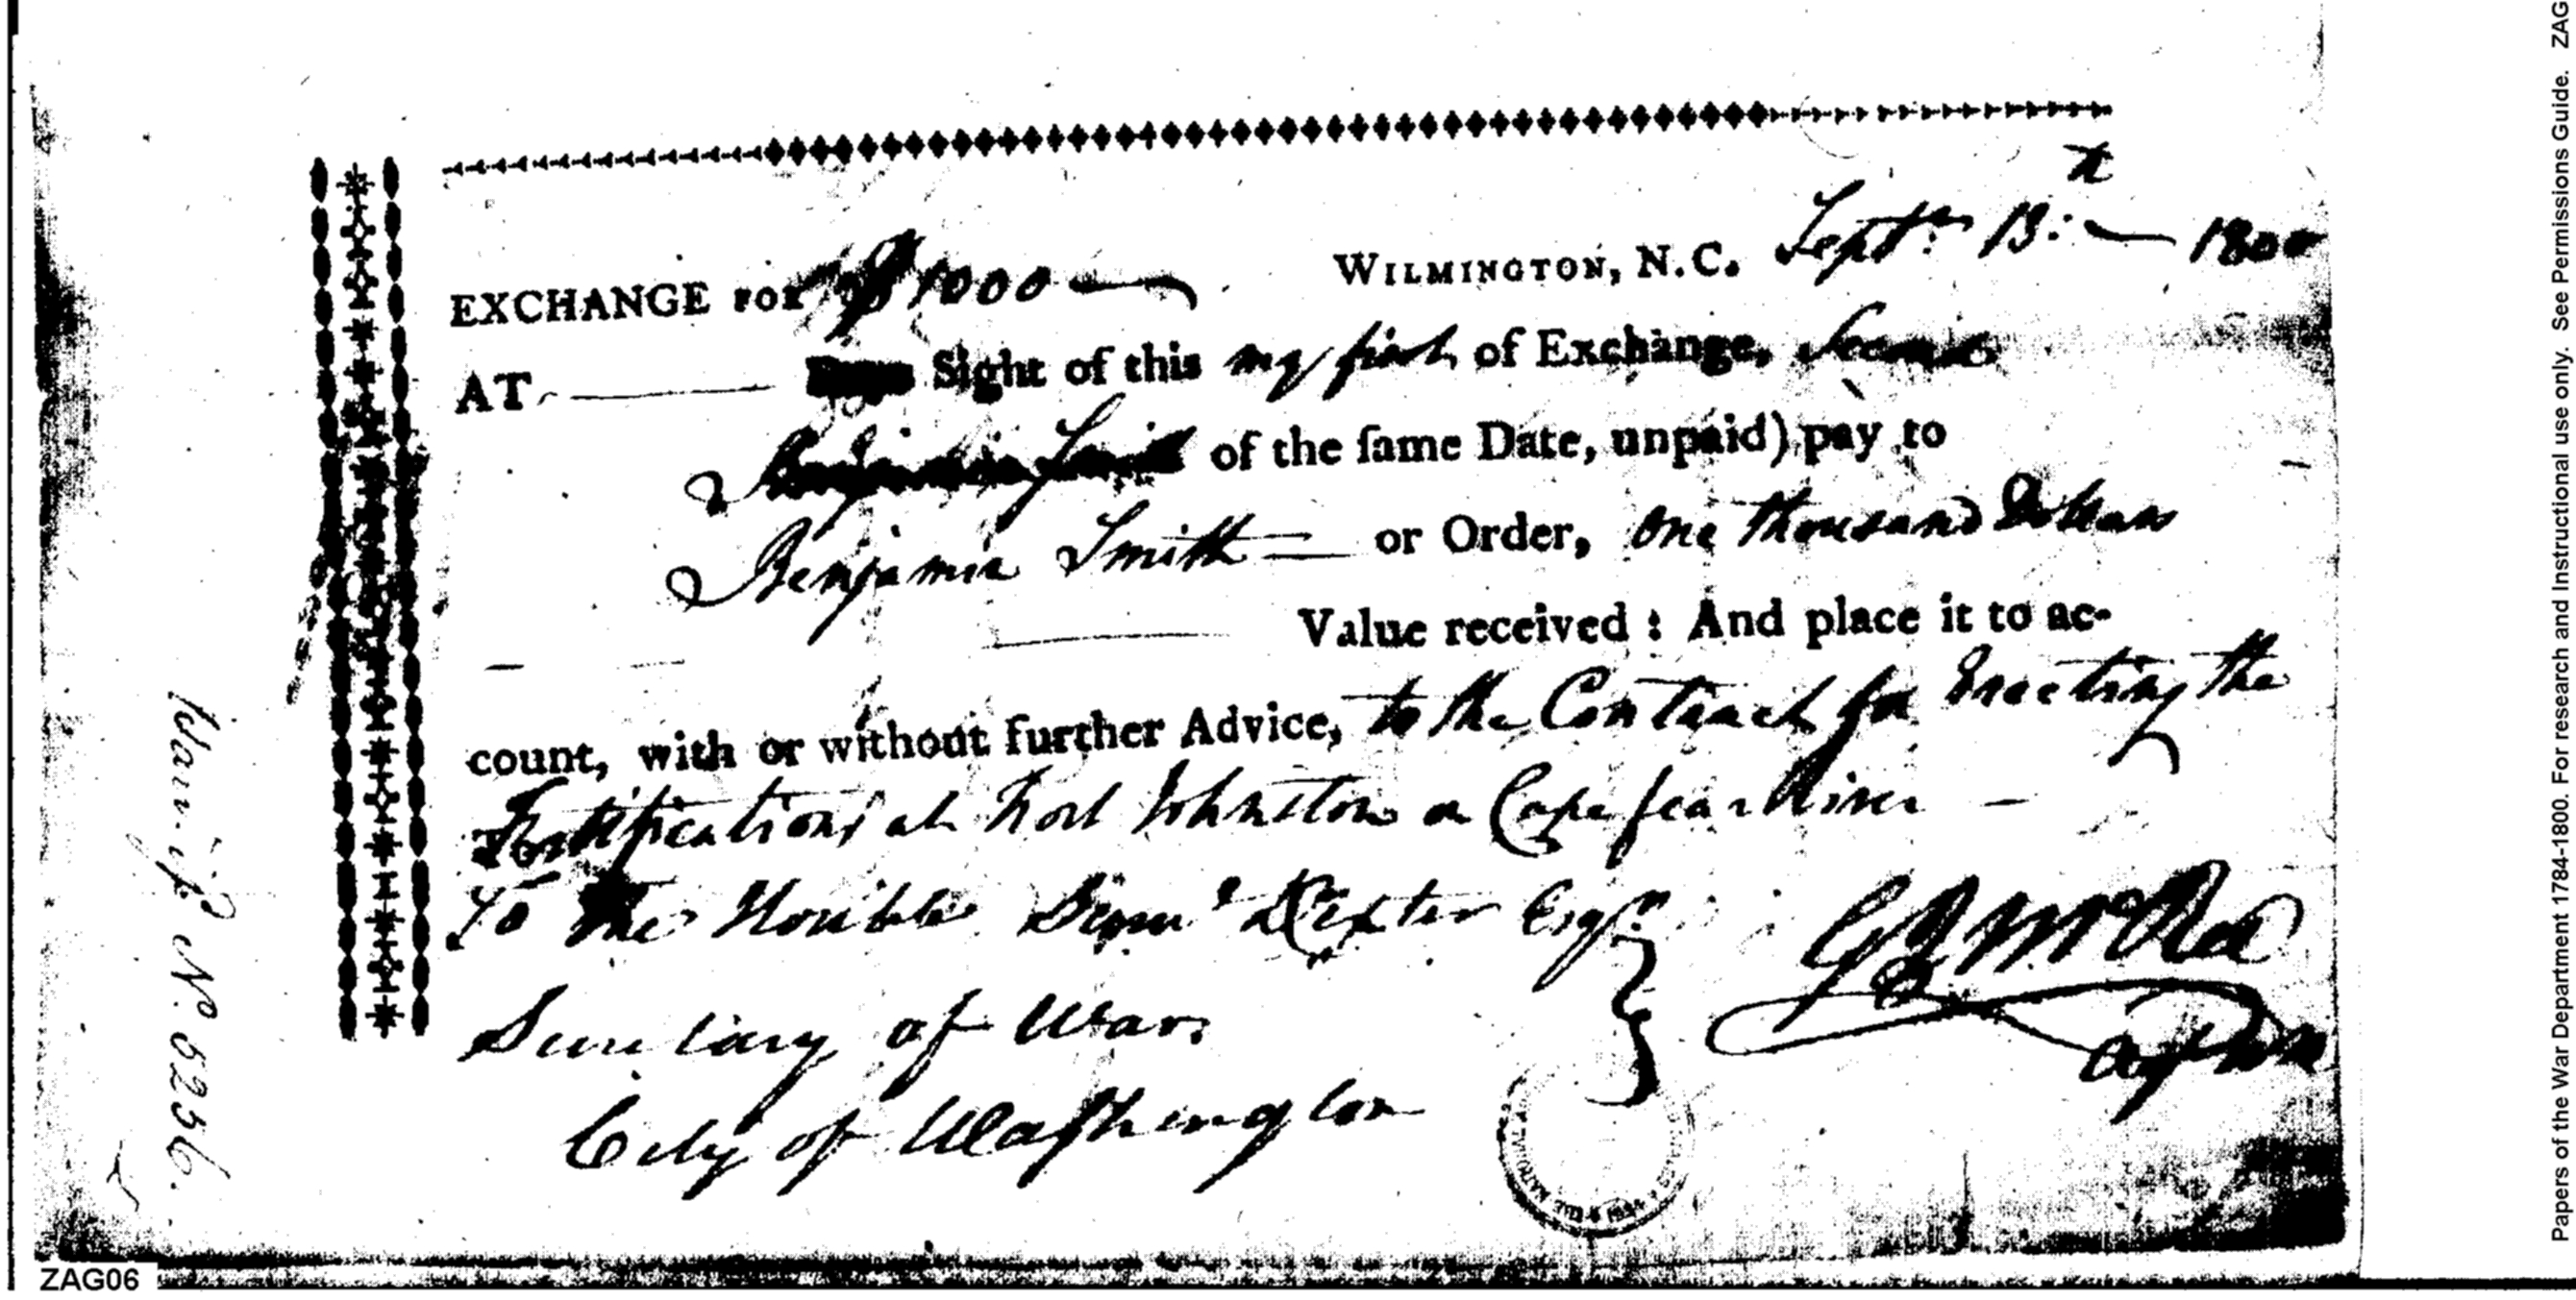 EXCHANGE FOR $1000 WILMINGTON, N.C. Septr. 13: th 1800
AT Sight of this my first of Exchange, Second
of the ſame Date, unpaid) pay to
Benjamin Smith or Order, One thousand Dollars
Value received: And place it to ac-
count, with or without further Advice, to the Contract for Erecting the
Fortifications at Fort Johnston on Cape fear River
To The Honible Saml. Dexter Esqr.
Secretary of War
City of Washington
G J McRee
Warr. No. 5256.
ZAG06
Papers of the War Department 1784-1800. For research and Instructional use only. See Permissions Guide. ZAG